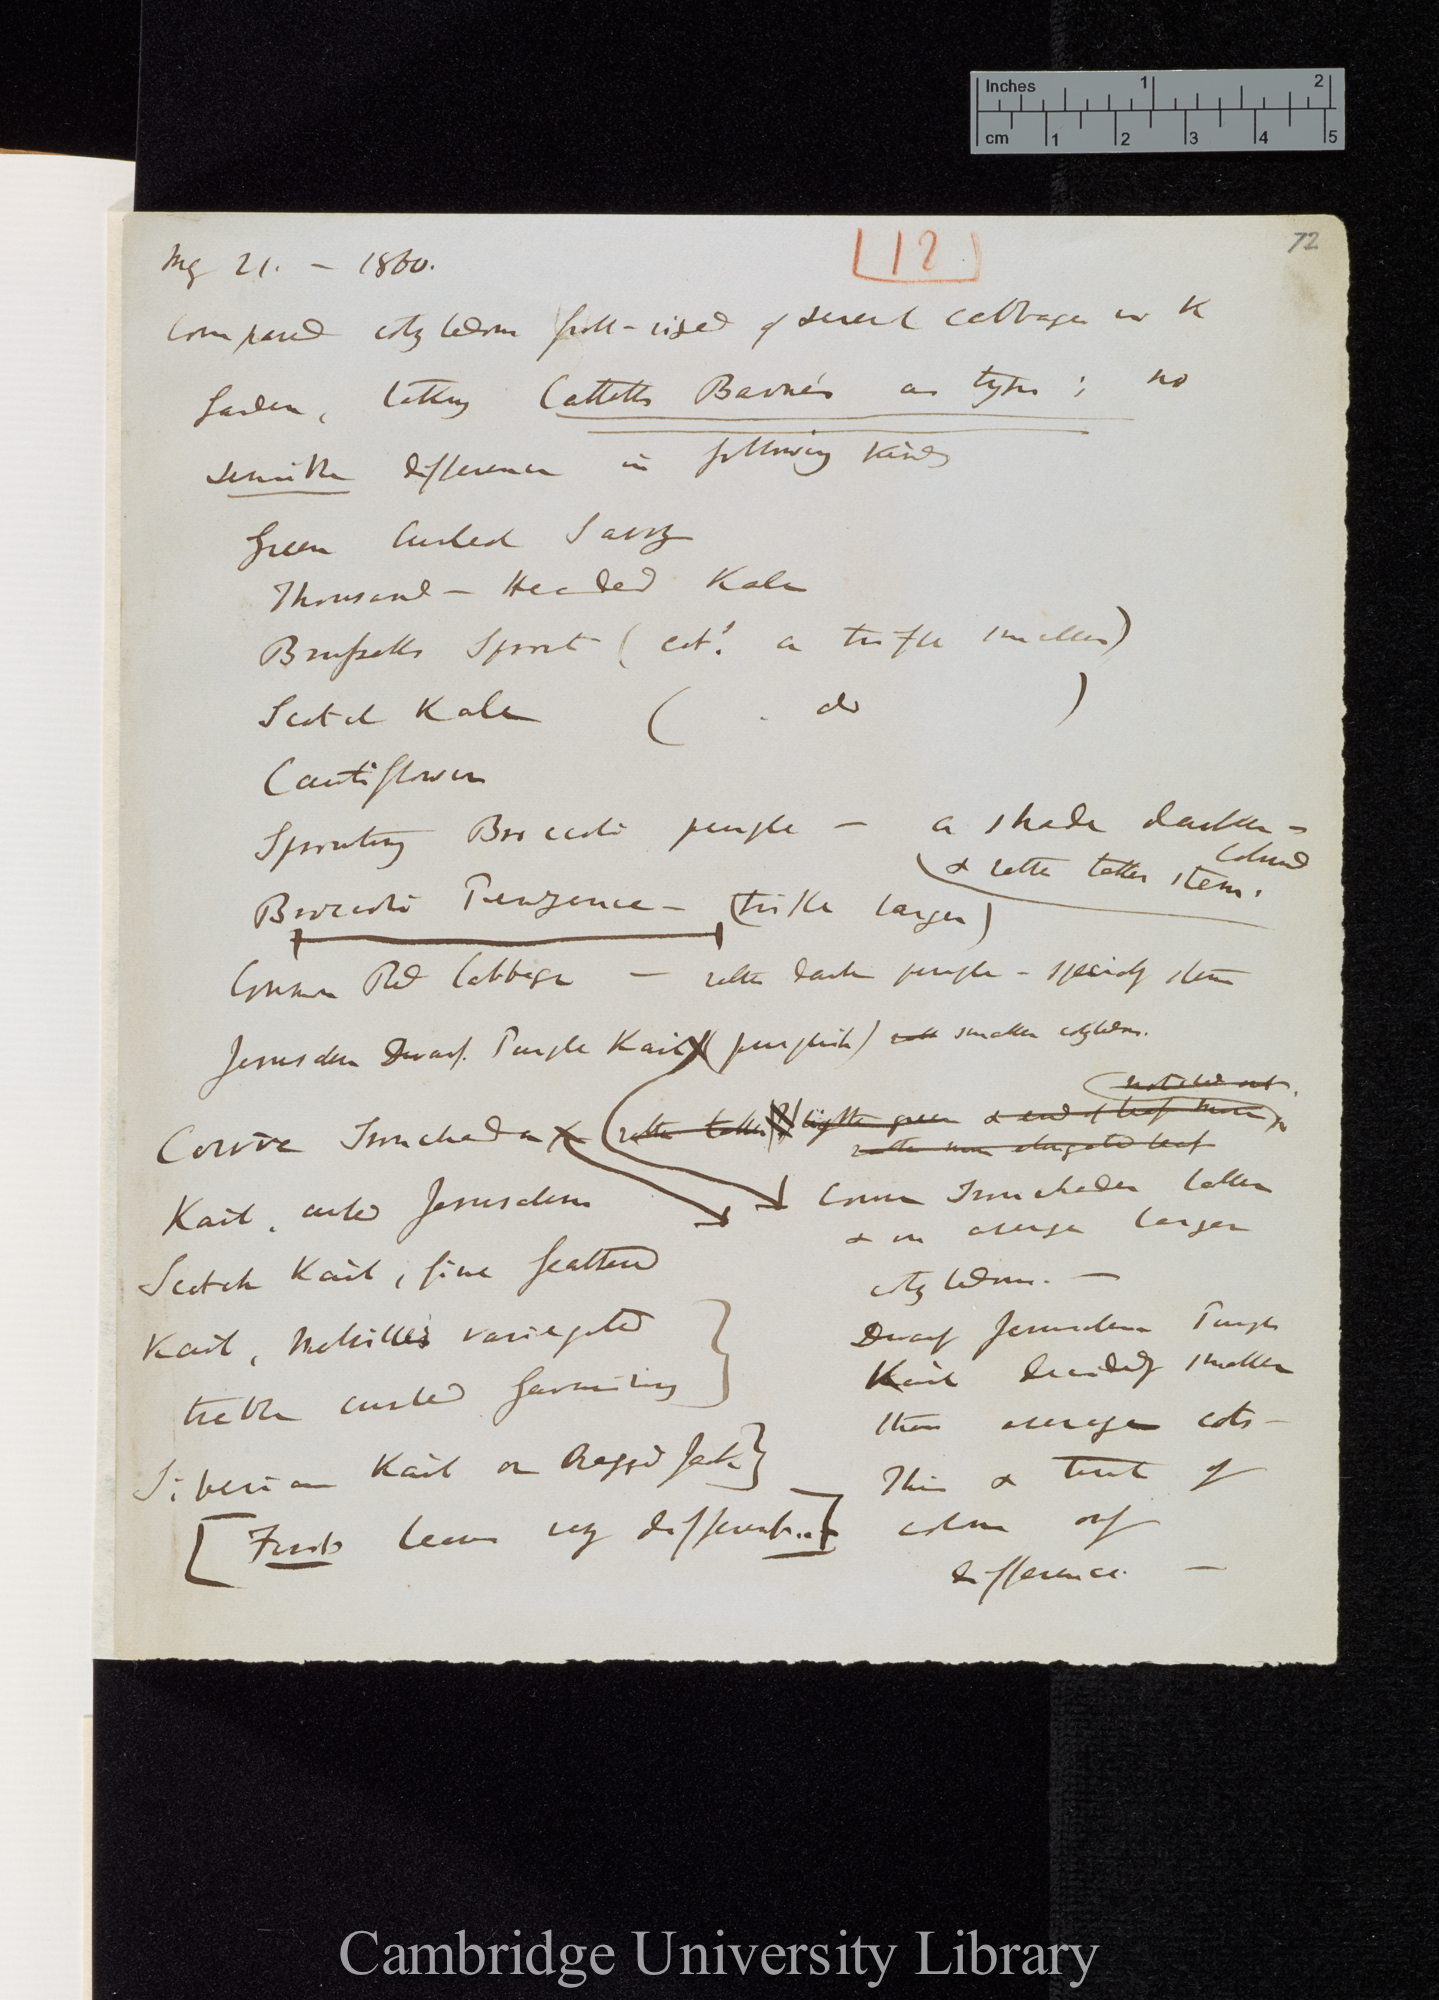 Inches 1 2
cm 1 2 3 4 5
[12]
72
May 21. – 1860.
Compared cotyledons full-sized of several cabbages in K
Garden, taking Cattells Barnes as type; no
sensible difference in following kinds
Green Curled Savoy
Thousand – Headed Kale
Brussells Sprout (cots. a trifle smaller)
Scotch Kale ( do )
Cauliflower
Sprouting Broccoli purple – a shade darker – coloured
& rather taller stems.
Broccoli Penzance – (trifle larger)
Common Red Cabbage – rather dark purple – specially stem
Jerusalem Dwarf. Purple Kail (purplish) smaller cotyledons.
noticed out.
Couve Tronchuda × (rather taller lighter green & end of leaf more
rather more elongated leaf
Kail, curled Jerusalem
Scotch Kail, fine feathered
Kail, Melville's variegated
treble curled Garnishing
Siberian Kail or Ragged Jack
[First leaves very different..]
Couve Tronchuda taller
& on average larger
cotyledons. –
Dwarf Jerusalem Purple
Kail decidedly smaller
than average cots –
This & tint of
colour only
difference. –
Cambridge University Library